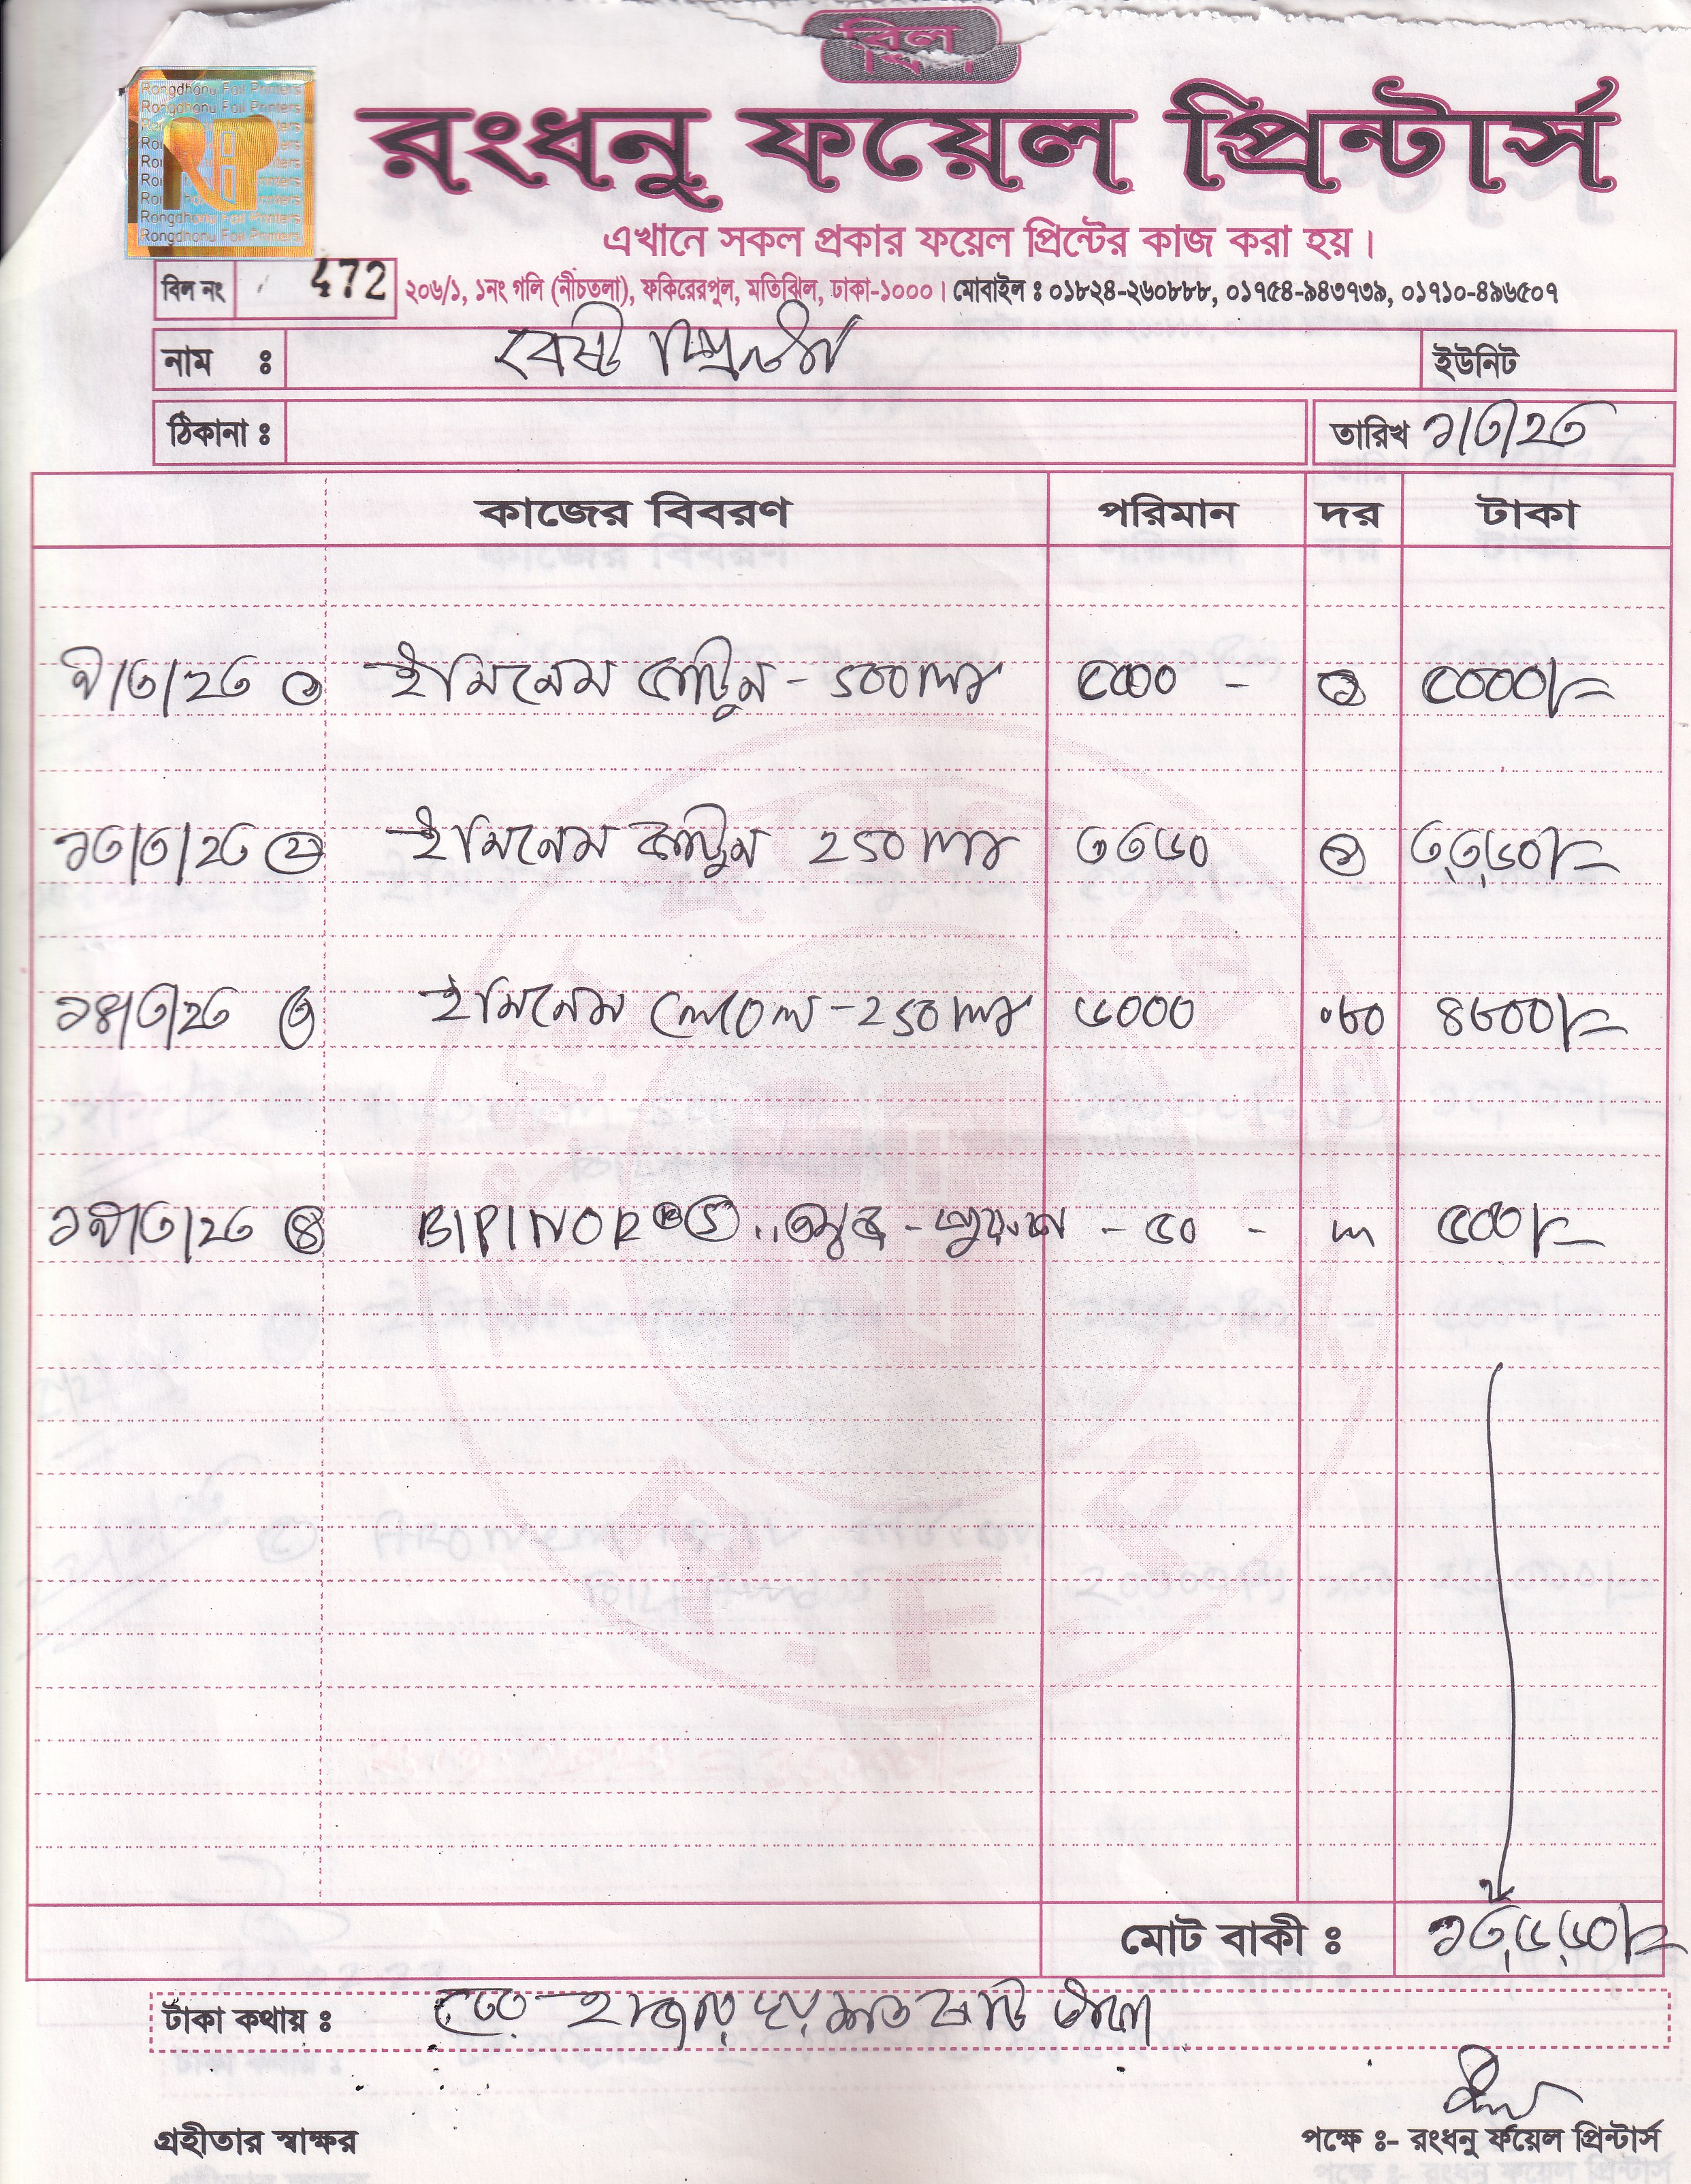 বিল
Rongdhonu Foil Printers
RP
রংধনু ফয়েল প্রিন্টার্স
এখানে সকল প্রকার ফয়েল প্রিন্টের কাজ করা হয়।
বিল নং 472 ২০৬/১, ১নং গলি (নীচতলা), ফকিরেরপুল, মতিঝিল, ঢাকা-১০০০। মোবাইল ঃ ০১৮২৪-২৬০৮৮৮, ০১৭৫৪-৯৪৩৭৩৯, ০১৭১০-৪৯৬৫০৭
নাম ঃ বেষ্ট প্রিন্টার্স ইউনিট
ঠিকানা ঃ তারিখ ১/৩/২৩
কাজের বিবরণ পরিমান দর টাকা
৭/৩/২৩ ১ ইমিনেম কার্টুন - ১০০ মিঃ ৫০০০ - ১ ৫০০০/=
১৩/৩/২৩ ২ ইমিনেম কার্টুন ২৫০ মিঃ ৩৩৬০ ১ ৩,৩৬০/=
১৪/৩/২৩ ৩ ইমিনেম লেবেল - ২৫০ মিঃ ৬০০০ .৮০ ৪৮০০/=
১৭/৩/২৩ ৪ BIPINOR - ৫০ - ৫০০/=
মোট বাকী ঃ ১৩,৬৬০/=
টাকা কথায় ঃ তের হাজার ছয় শত ষাট টাকা
গ্রহীতার স্বাক্ষর পক্ষে ঃ- রংধনু ফয়েল প্রিন্টার্স